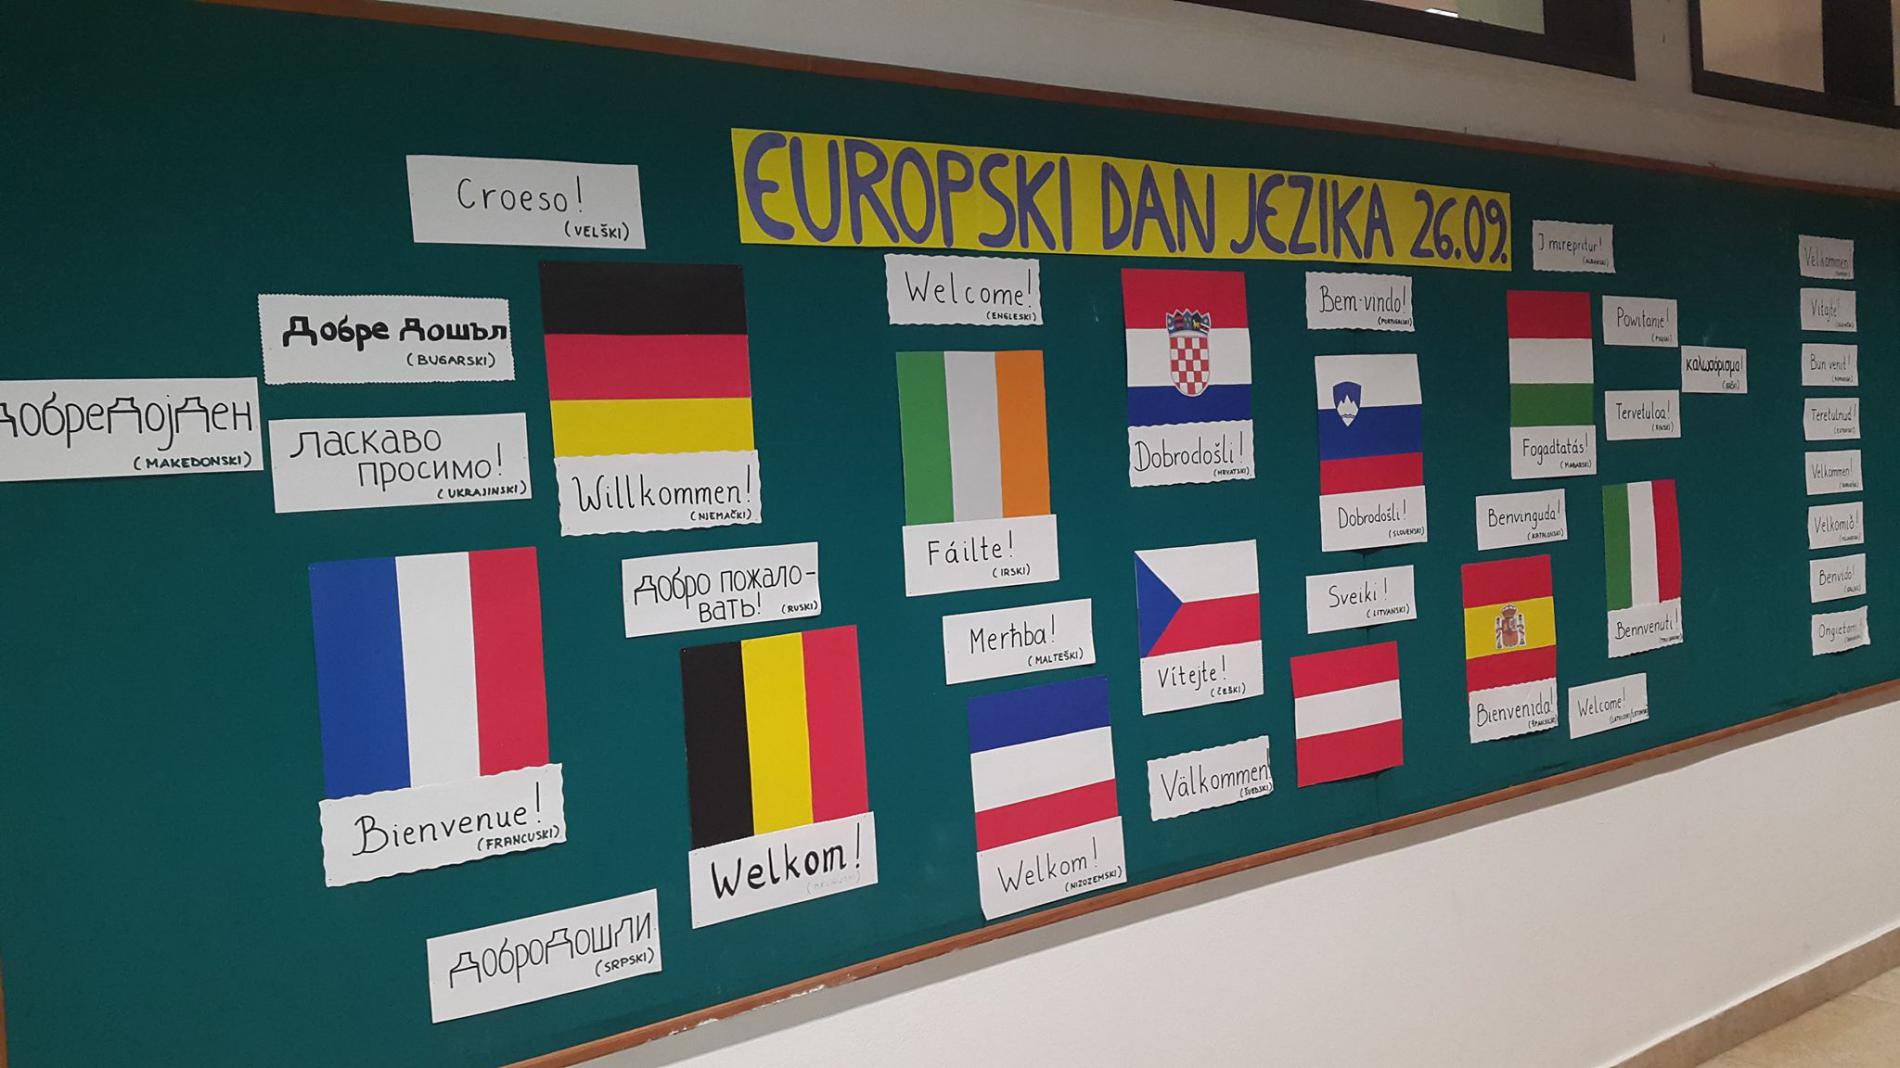 EUROPSKI DAN JEZIKA 26.09.
Croeso!
(VELŠKI)
Добре дошъл
(BUGARSKI)
добредојден
(MAKEDONSKI)
Ласкаво
просимо!
(UKRAJINSKI)
Willkommen!
(NJEMAČKI)
Bienvenue!
(FRANCUSKI)
Добро пожало-
вать!
(RUSKI)
Welkom!
Добродошли
(SRPSKI)
Welcome!
(ENGLESKI)
Fáilte!
(IRSKI)
Merħba!
(MALTEŠKI)
Welkom!
(NIZOZEMSKI)
Dobrodošli!
(HRVATSKI)
Vítejte!
(ČEŠKI)
Välkommen!
(ŠVEDSKI)
Bem-vindo!
(PORTUGALSKI)
Dobrodošli!
(SLOVENSKI)
Sveiki!
(LITVANSKI)
J mirepritur!
(ALBANSKI)
Fogadtatás!
(MAĐARSKI)
Benvinguda!
(KATALONSKI)
Bienvenida!
(ŠPANJOLSKI)
Welcome!
Powitanie!
(POLJSKI)
καλωσόρισμα!
(GRČKI)
Tervetuloa!
(FINSKI)
Bennvenuti!
Velkommen!
Vitajte!
Bun venit!
Teretulnud!
Velkommen!
Velkomið!
Benvido!